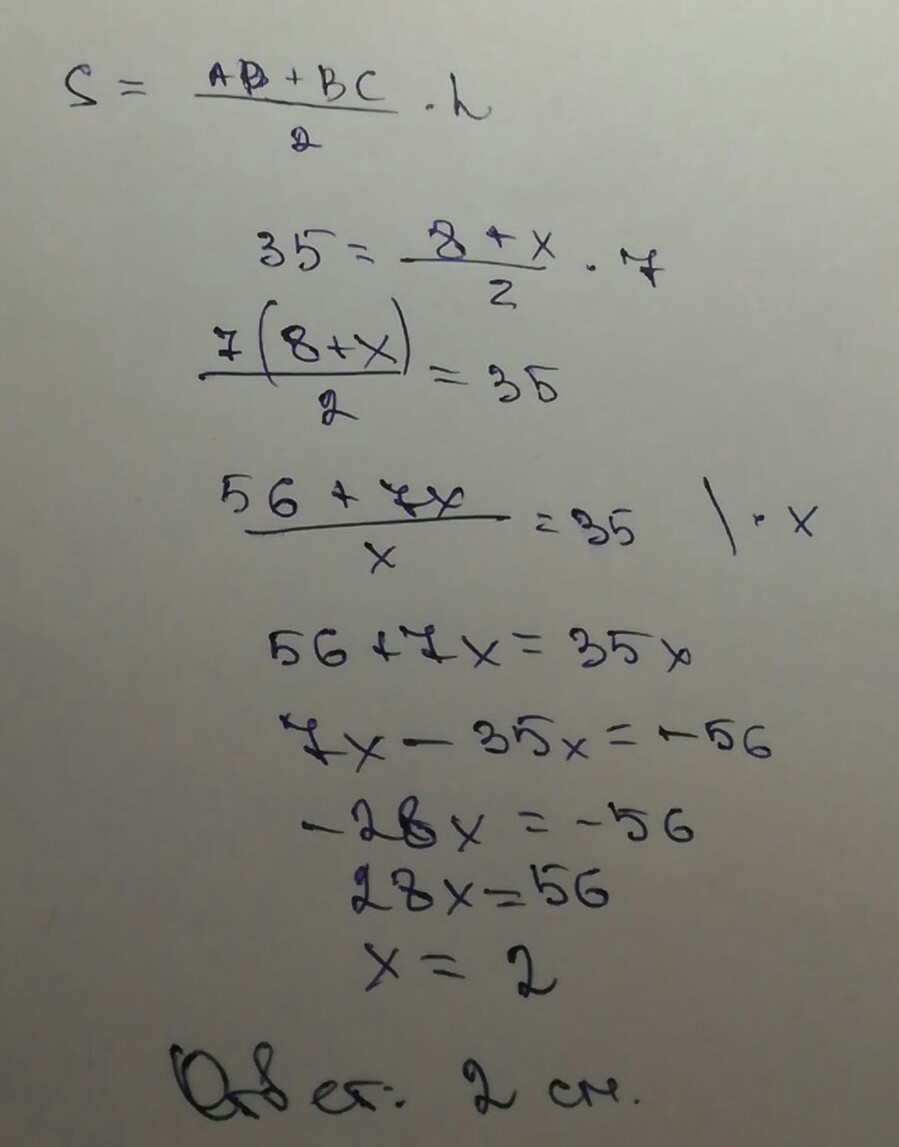 S = (AB + BC)/2 · h
35 = (8 + x)/2 · 7
7(8+x)/2 = 35
(56 + 7x)/x = 35 | · x
56 + 7x = 35x
7x - 35x = -56
-28x = -56
28x = 56
x = 2
Ответ: 2 см.